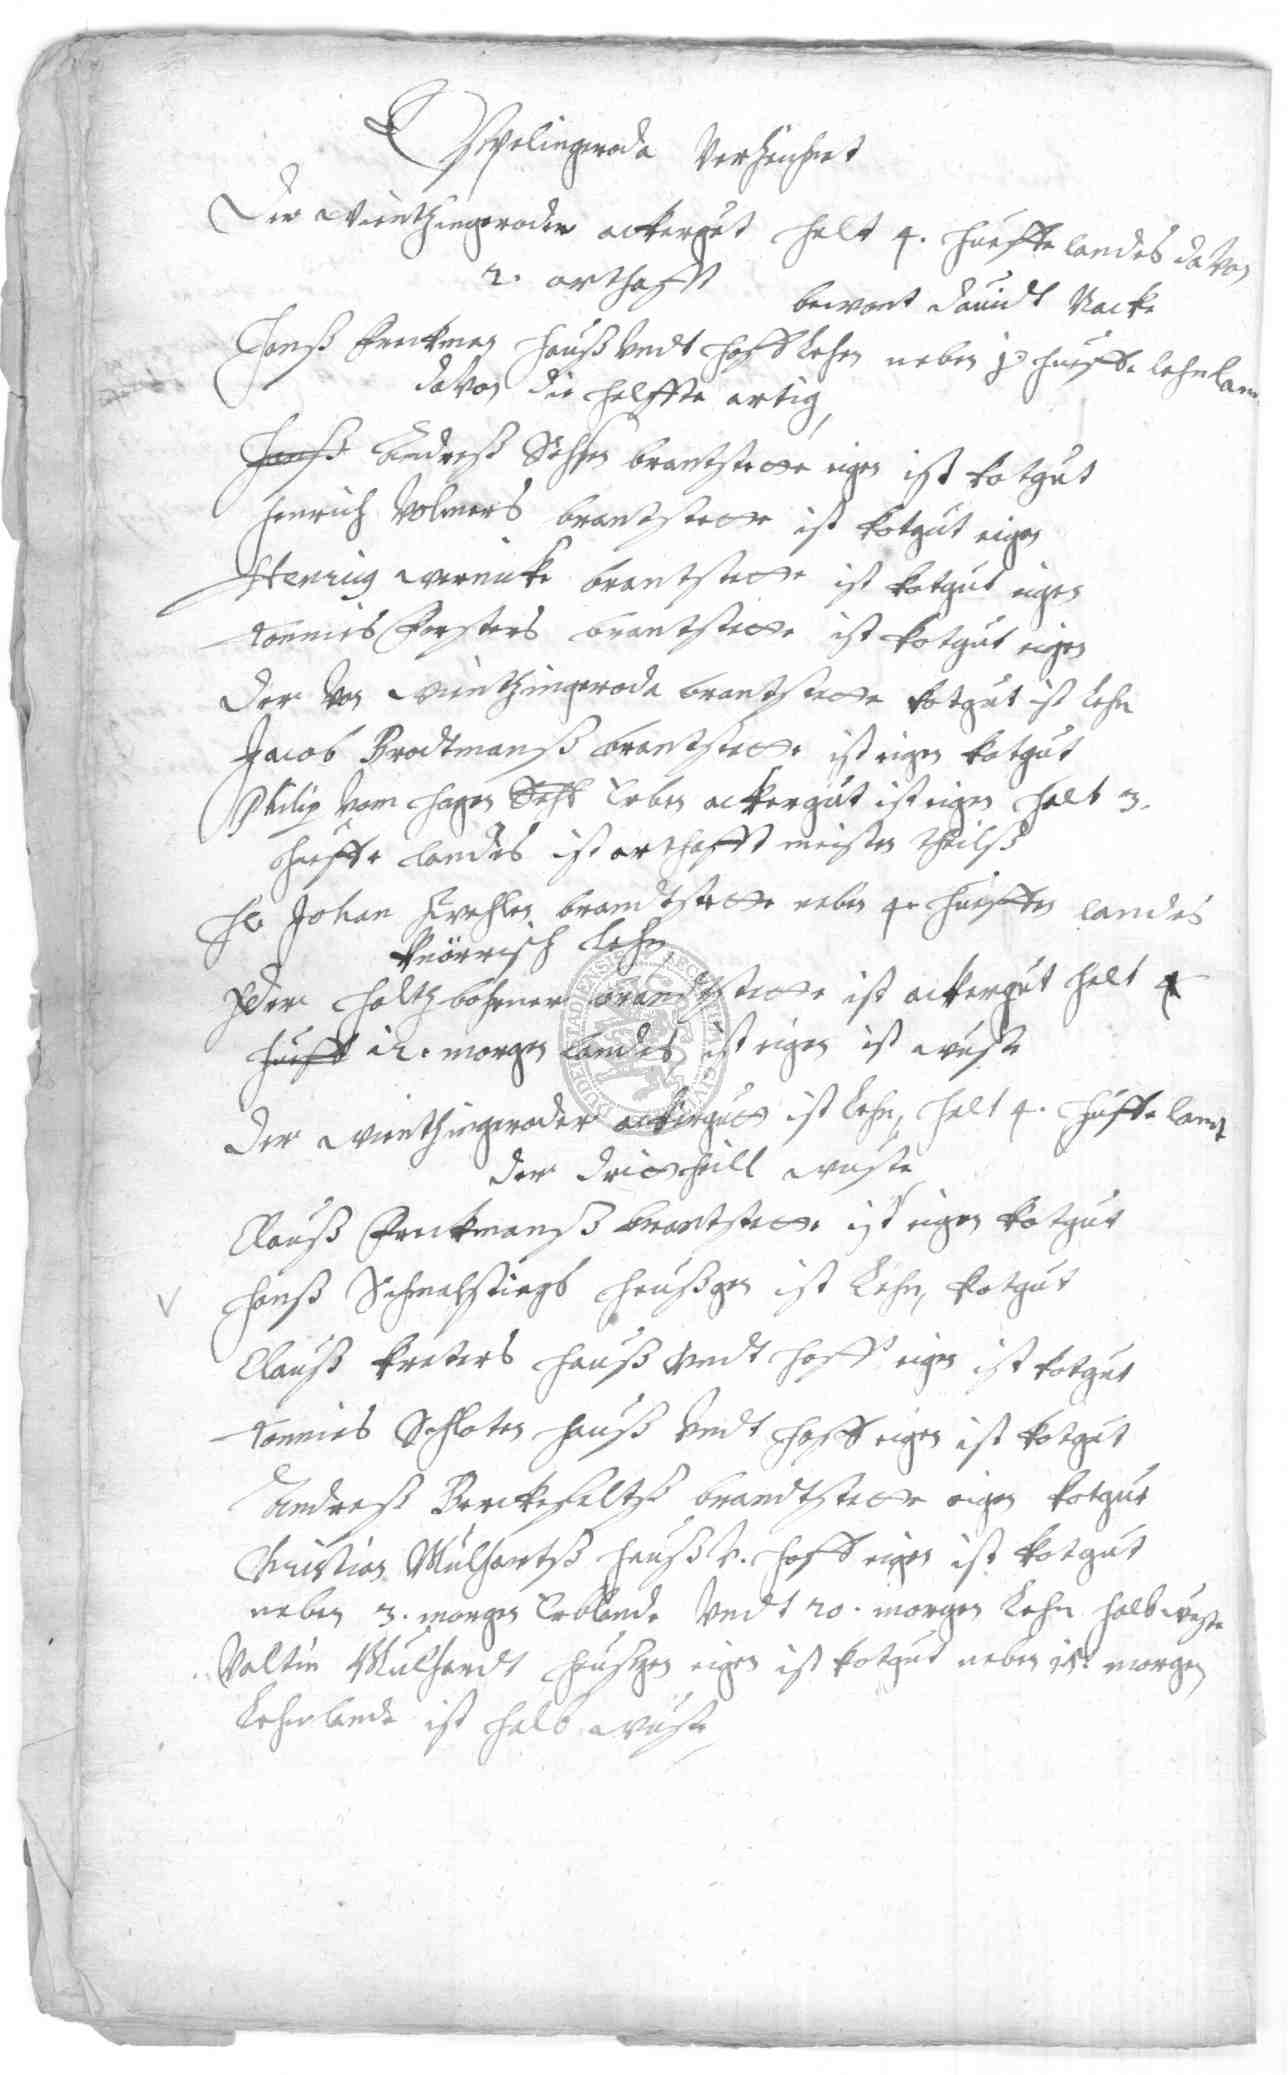 Esplingeroda Verzeichnet
Der Wintzingeroder ackergut helt 4. hueffe landes davon
2. arthafft
bewont Dauidt Nacke
Hanß Freckman hauß vndt hoff Lehen neben 1 hueffe lehnlandt
davon die helffte artig,
Hanß Andreß brantstette eigen ist kotgut
Henrich Volmers brantstette ist kotgut eigen
Henrig wernicke brantstette ist kotgut eigen
Tonnies Forsters brantstette ist kotgut eigen
Der von Wintzingeroda brantstette kotgut ist Lehn
Jacob Brodtmanß brantstette ist eigen kotgut
Philip vom Hagen Erben ackergut ist eigen helt 3.
hueffe landes ist arthafft meisten theilß
H. Johan brandtstette neben 4. hueffen landes
Knörrisch Lehn
Der brandtstette ist ackergut helt 4
hueff 12. morgen landes ist eigen ist wuste
Der Wintzingeroder ackergutt ist Lehn, helt 4. huffe landt
der dritte theill wuste
Clauß Freckmanß brantstette ist eigen kotgut
Hanß Schmehstiegs heußgen ist Lehn, kotgut
Clauß Kreters hauß vndt hoff eigen ist kotgut
Tonnies Schloten hauß vndt hoff eigen ist kotgut
Andreß Berckefeltß brandtstette eigen kotgut
Christian Mulhartß hauß v. hoff eigen ist kotgut
neben 3. morgen Erblande vndt 20. morgen Lehn halb wuste
Valtin Mulhardt heusgen eigen ist kotgut neben 15. morgen
Lehnlande ist halb wuste,